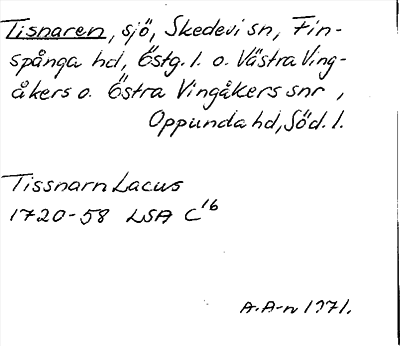 Tisnaren, sjö, Skedevi sn, Fin-
spånga hd, Östg. l. o. Västra Ving-
åkers o. Östra Vingåkers snr,
Oppunda hd, Söd. l.
Tissnarn Lacus
1720-58 LSA C16
A.A-n 1971.